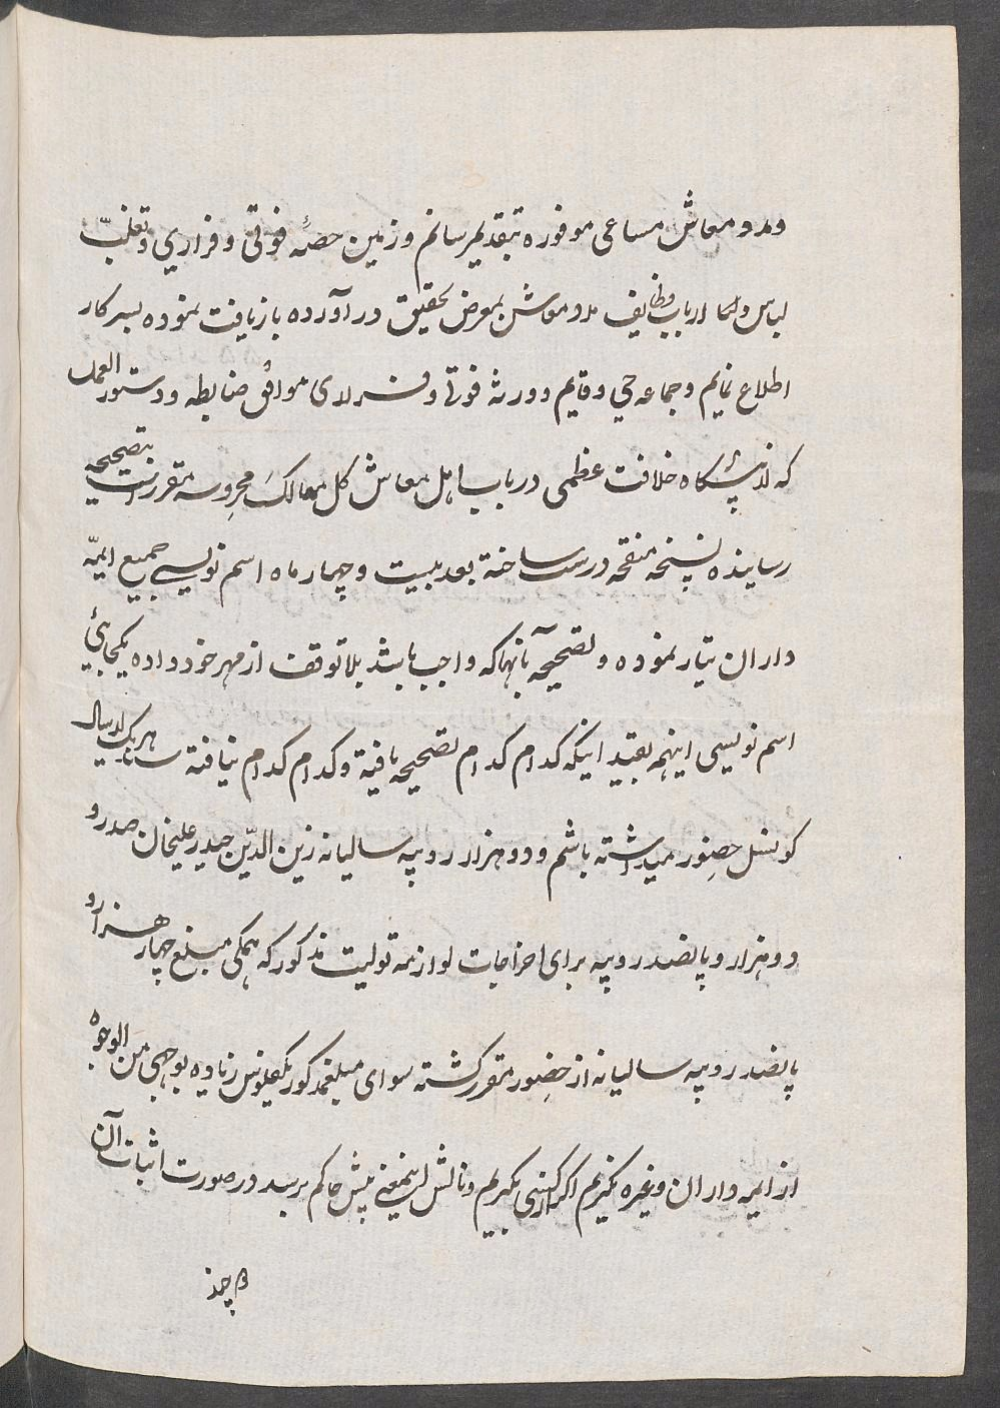 ومدد معاش مساعی موفوره بتقدیم رسانم و زمین حصهٔ فوتی و فراری و تغلب
لباس و لکا ارباب وظایف مدد معاش بمعرض تحقیق در آورده بازیافت نموده بسرکار
اطلاع نمایم و جماعه حی و قایم و ورثه فوتی و فراری موافق ضابطه و دستور العمل
که از پیشگاه خلافت عظمی در باب اهل معاش کل ممالک محروسه مقرر است بتصحیحه
رسانیده نسخه منقحه درست ساخته بعد بیست و چهار ماه اسم نویسی جمیع ایمّه
داران تیار نموده و تصحیحه بآنها که واجب باشد بلا توقف از مهر خود داده یکجایئ
اسم نویسی اینهمه بقید اینکه کدام کدام تصحیحه یافته و کدام کدام نیافته هر یکسال ارسال
کونسل حضور میداشته باشم و دو هزار روپیه سالیانه زین الدّین حیدر علیخان صدر و
دو هزار و پانصد روپیه برای اخراجات لوازمه تولیت مذکور که همگی مبلغ چهار هزار و
پانصد روپیه سالیانه از حضور مقرر گشته سوای مبلغمذکور یکفلوس زیاده بوجهی من الوجوه
از ایمه داران و غیره نگیرم اگر از کسی بگیرم و نالش اینمعنی پیش حاکم برسد در صورت اثبات آن
هر چند